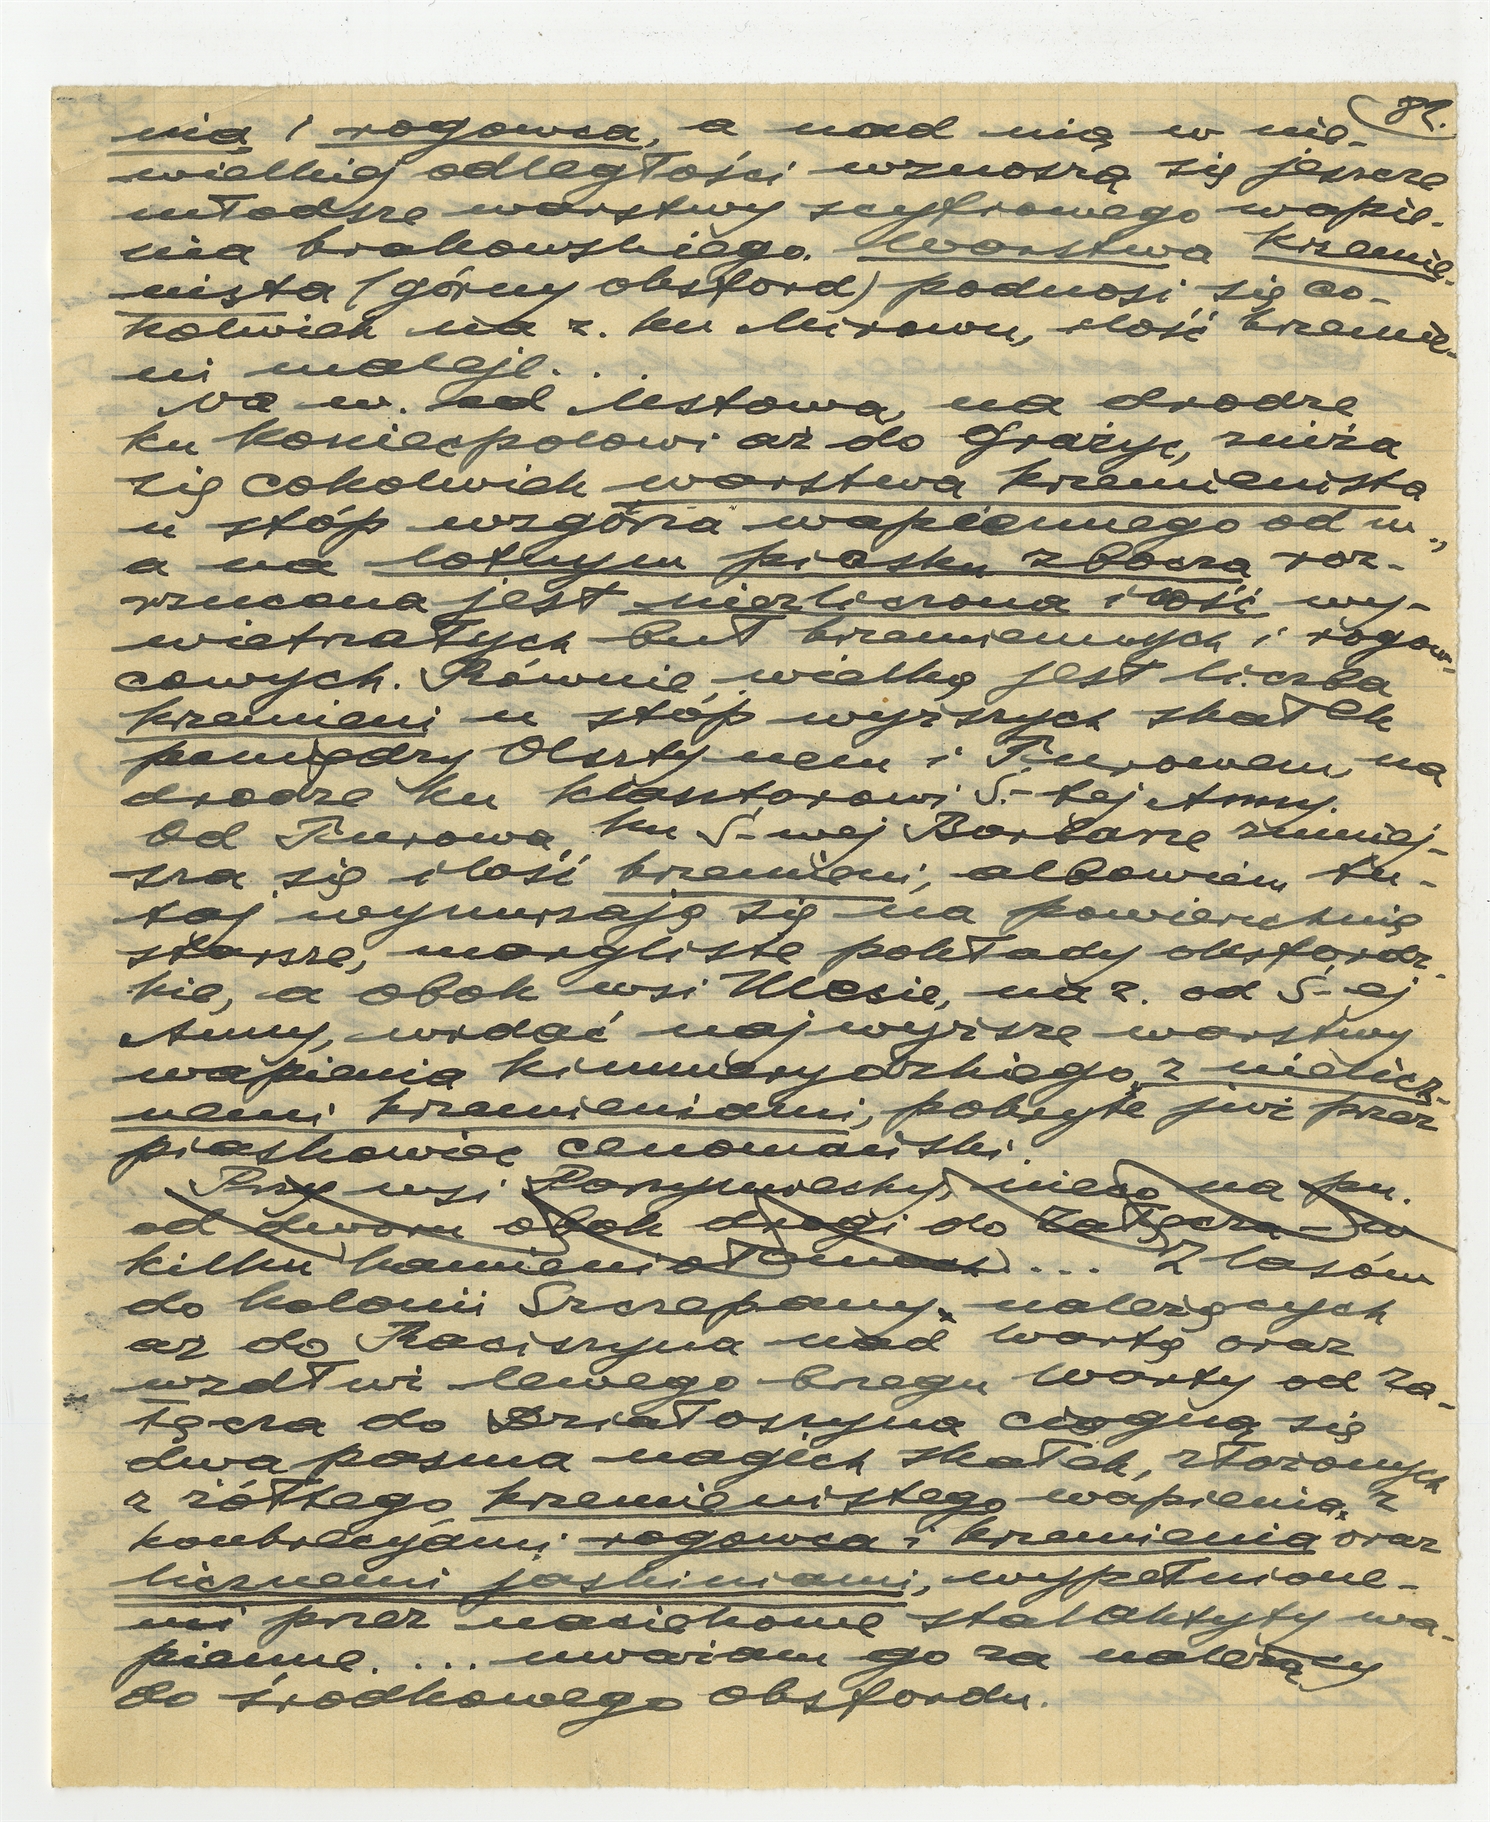 82.
nia i rogowca, a nad nią w nie-
wielkiej odległości wznoszą się jeszcze
młodsze warstwy scyfiowego wapie-
nia krakowskiego. Warstwa krzemie-
nista (górny oksford) podnosi się co-
kolwiek na z. ku Mirowu, ilość krzemie-
ni maleje...
Na w. od Mstowa, na drodze
ku Koniecpolowi aż do Grażyc, zniża
się cokolwiek warstwa krzemienista
u stóp wzgórza wapiennego od w.,
a na lotnym piasku zbocza roz-
rzucona jest niezliczona ilość wy-
wietrzałych buł krzemiennych i rogow-
cowych. Równie wielką jest liczba
krzemieni u stóp wyższych skałek
pomiędzy Olsztynem i Turowem, na
drodze ku klasztorowi Ś-tej Anny.
Od Turowa ku Ś-wej Barbarze zmniej-
sza się ilość krzemieni, albowiem tu-
taj wynurzają się na powierzchnię
starsze, margliste pokłady oksfordz-
kie, a obok wsi Małesie, na z. od Ś-ej
Anny, widać najwyższe warstwy
wapienia kimmerydzkiego z nielicz-
nemi krzemieniami, pokryte już przez
piaskowiec cenomański.
Przy wsi nieco na pn.
od dworu obok drogi do Załęcza - w
kilku kamieniołomach ... Z lasów
do kolonii Szczepany, należących
aż do Raciszyna nad Wartą oraz
wzdłuż lewego brzegu Warty od Za-
łęcza do Działoszyna ciągną się
dwa pasma nagich skałek, złożonych
z żółtego krzemienistego wapienia, z
konkrecyjami rogowca i krzemienia oraz
licznemi jaskiniami, wypełnione-
mi przez naciekowe stalaktyty wa-
pienne. ... uważam go za należący
do środkowego oksfordu.